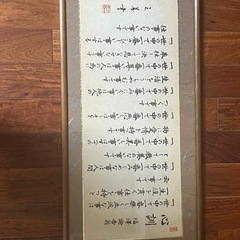 心訓
福澤諭吉翁
一世の中で一番楽しく立派な事は
一生涯を貫く仕事を持つと
云う事です
一世の中で一番みじめな事は人間
として教養のない事です
一世の中で一番
愛情を持つ事です
一世の中で一番
つく事です
一世の中で一番みにくい事は他人の
生活をうらやむ事です
一世の中で一番尊い事は人の為に
奉仕し決して恩にきせない事です
一世の中で一番さびしい事はする
仕事のない事です